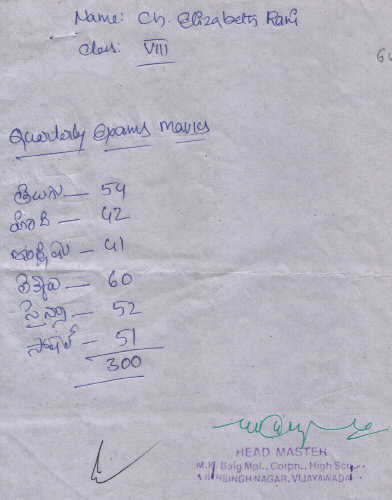 Name: Ch. Elizabeth Rani
Class: VIII
Quarterly Exams Marks
తెలుగు — 54
హిందీ — 42
ఇంగ్లీషు — 41
లెక్కలు — 60
సైన్సు — 52
సోషల్ — 51
300
HEAD MASTER
M.K. Baig Mpl., Corpn., High Scu
SINGH NAGAR, VIJAYAWADA